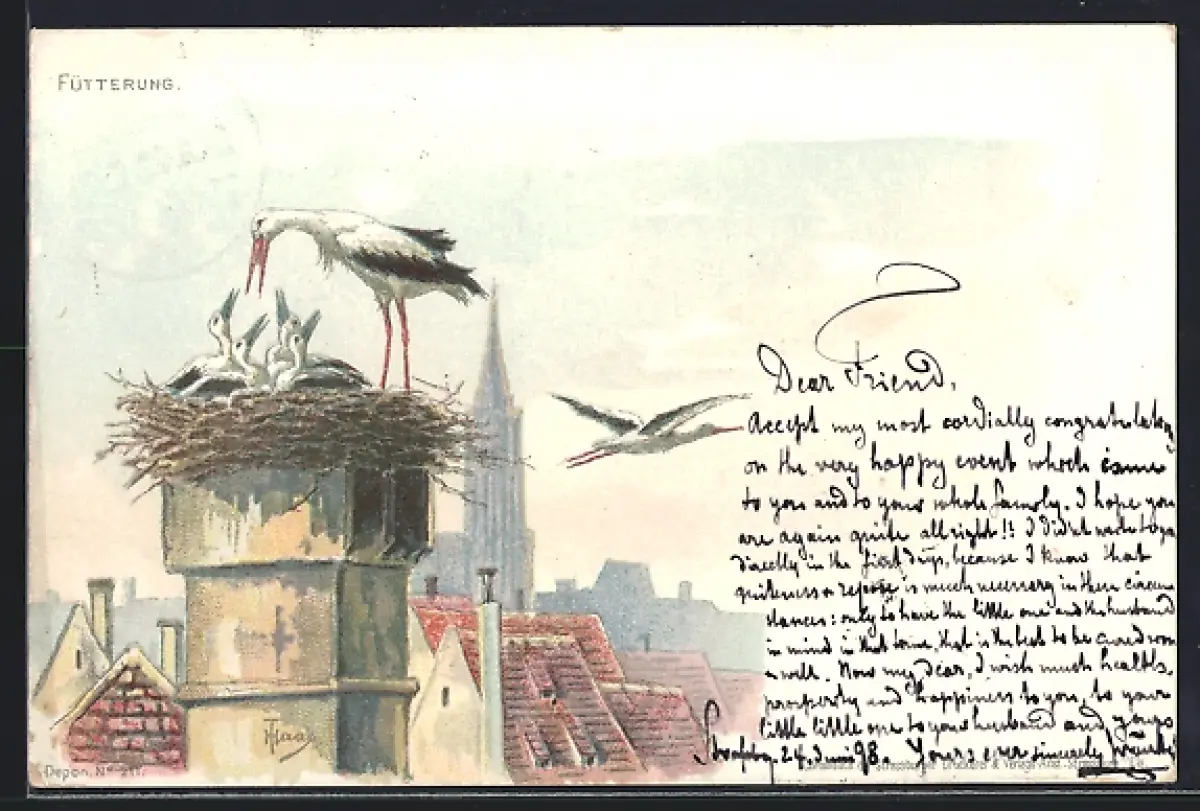 FÜTTERUNG.
Dear Friend,
Accept my most cordially congratulation
on the very happy event which came
to you and to your whole family. I hope you
are again quite allright!! I didn't write to you
directly in the first days, because I know that
quiteness & repose is much necessary in these circum
stances: only to have the little one and the husband
in mind in that time, that is the best to be cured soon
& well. Now my dear, I wish much health,
prosperity and happiness to you, to your
little little one to your husband and yours
24. Juni 98. Yours ever sincerely
THaas
Depon. Nº 211.
Strassburger Druckerei & Verlags Anst.